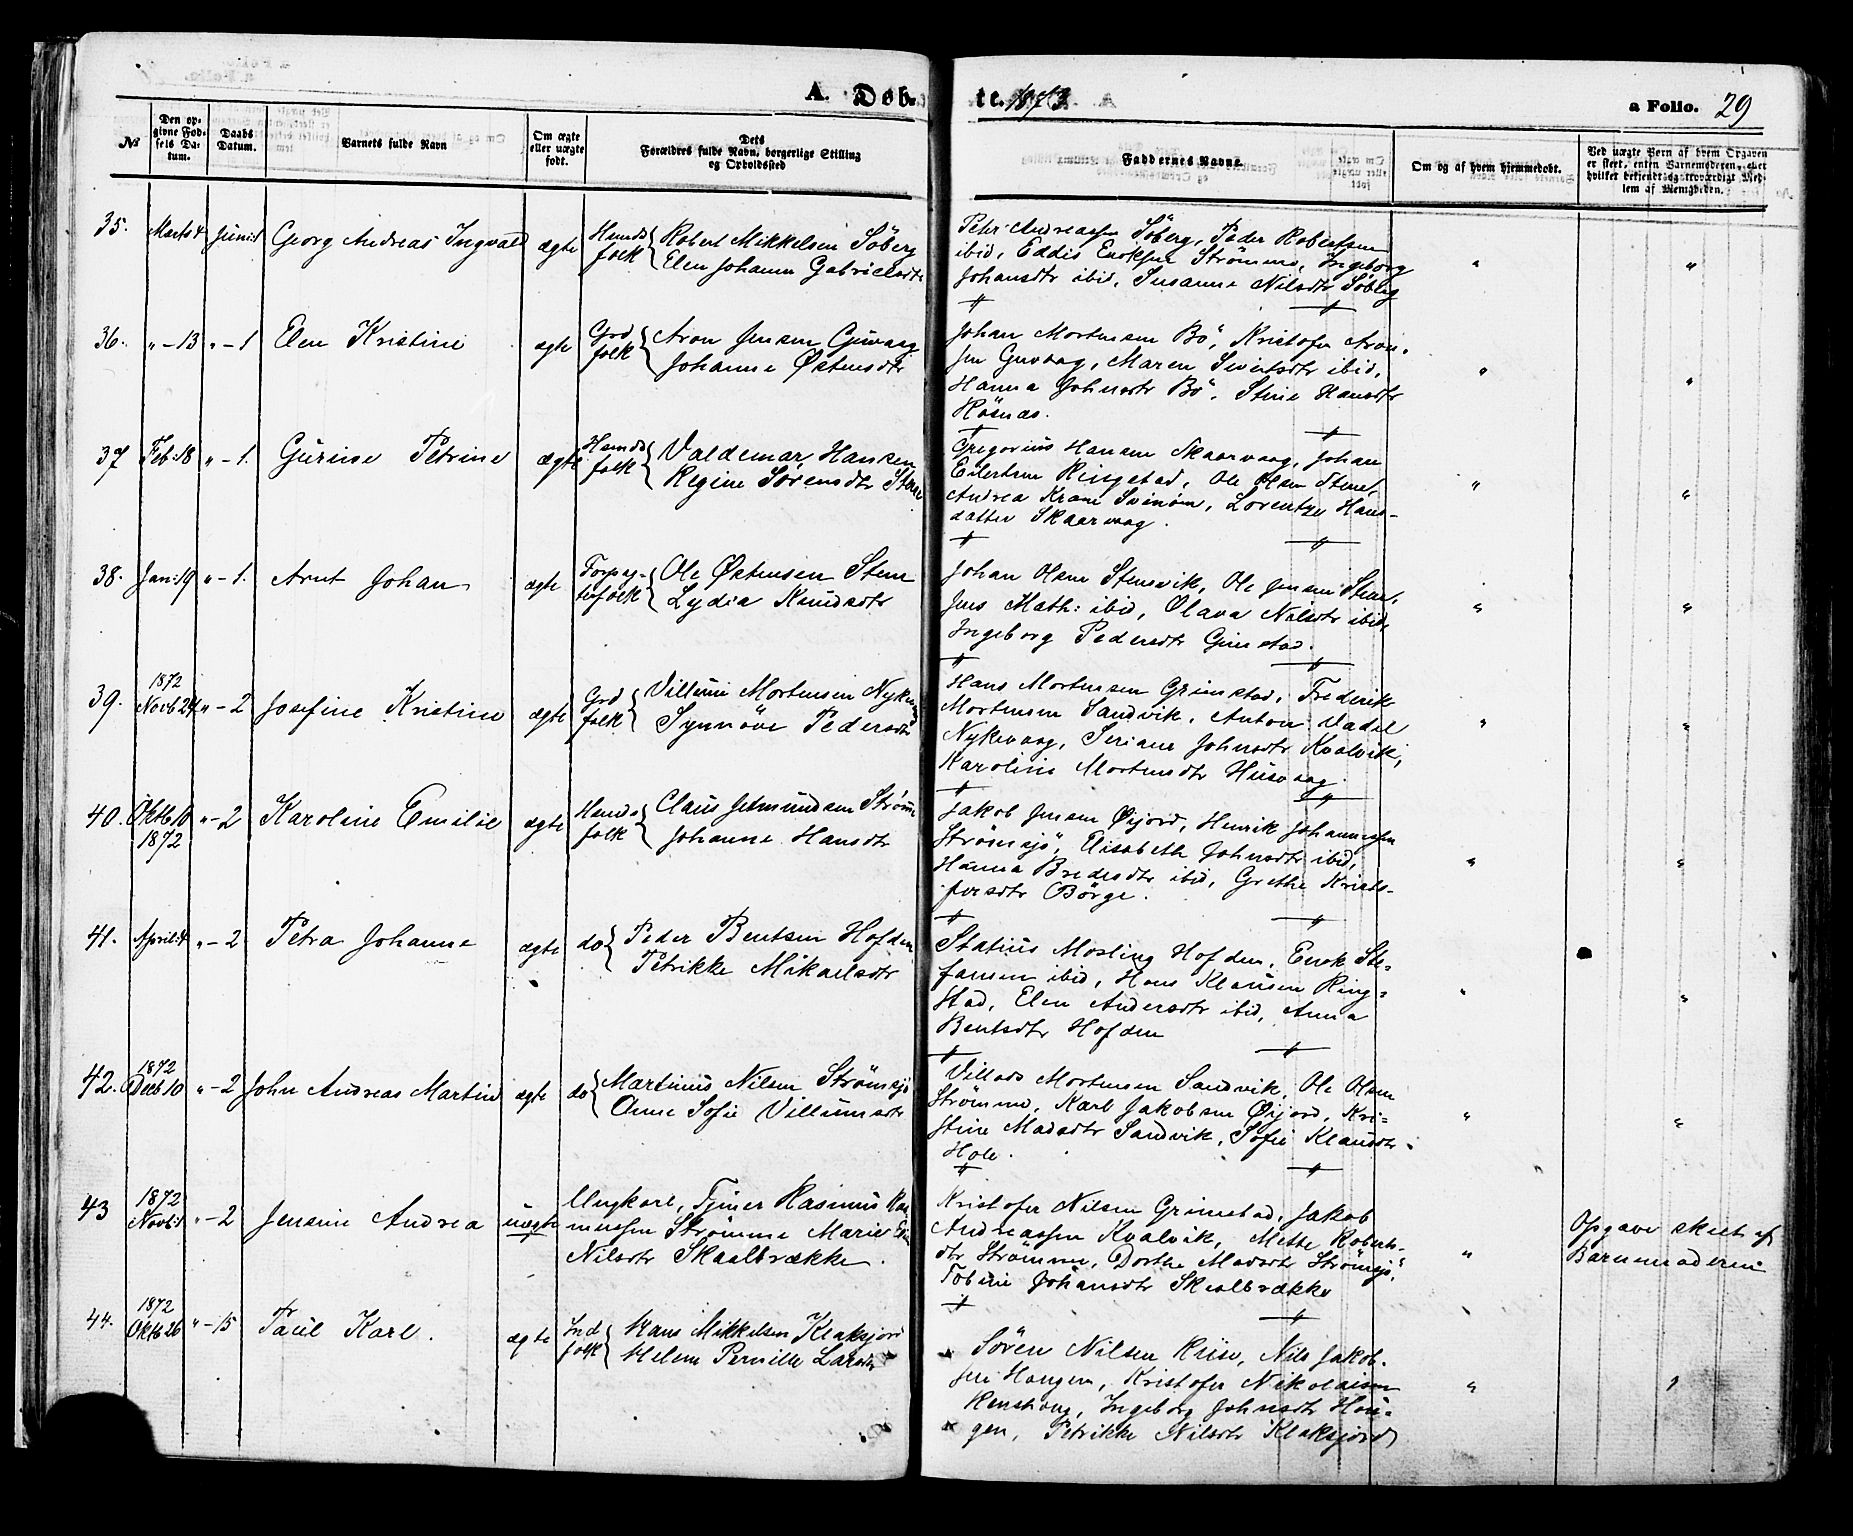 A. Döb- te. 1873. a Folio. 29
№ Den opgivne Fødsels Datum. Daabs Datum. Barnets fulde Navn Om ægte eller uægte født. Dets Forældres fulde Navn, borgerlige Stilling og Opholdssted Faddernes Navne. Om og af hvem hjemmedøbt. Ved uægte Børn af hvem Opgaven er skeet, enten Barnemoderen, eller hvilket bekjendt og troværdigt Medlem af Menigheden.
35. Marts 4 Juni 1 Georg Andreas Ingvald ægte Hmds folk { Robert Mikkelsen Söberg
Elen Johanna Gabrielsdtr
Peter Andreassen Söberg, Peder Robertsen
ibid, Eddis Enoksen Strömme, Ingeborg
Johansdtr ibid, Susanne Nilsdtr Söberg
36. " - 13 " - 1 Elen Kristine ægte Grd folk { Aron Jensen Guvaag
Johanne Østensdtr
Johan Mortensen Bö, Kristofer Aron-
sen Guvaag, Maren Sivertsdtr ibid,
Hanna Johnsdtr Bö, Stine Hansdtr
Rösnæs.
37 Feb: 18 " - 1. Gurine Petrine ægte Hmds folk { Valdemar Hansen
Regine Sörensdtr Stene
Gregorius Hansen Skaarvaag, Johan
Eilertsen Ringstad, Ole Olsen Stene,
Andrea Krane Svinöen, Lorentze Hans-
datter Skaarvaag.
38. Jan: 19 " - 1. Arnt Johan ægte Forpagterfolk { Ole Østensen Stene
Lydia Knudsdtr
Johan Olsen Stensvik, Ole Jensen Stene,
Jens Math: ibid, Olava Nilsdtr ibid,
Ingeborg Pedersdtr Grimstad.
39. 1872 Novb 24 " - 2 Josefine Kristine ægte Grd folk { Villum Mortensen Nykvaag
Synnöve Pedersdtr
Hans Mortensen Grimstad, Frederik
Mortensen Sandvik, Anton Vadel
Nykvaag, Seriane Johnsdtr Kvalvik,
Karoline Mortensdtr Husvaag.
40. Oktb 10 1872 " - 2 Karoline Emilie ægte Hmds folk { Claus Jetmundsen Strömme
Johanne Hansdtr
Jakob Jensen Øijord, Henrik Johannessen
Strömsjö, Elisabeth Johnsdtr ibid,
Hanna Bredesdtr ibid, Grethe Kristo-
fersdtr Börge.
41. April: 4 " - 2 Petra Johanne ægte do { Peder Bentsen Hofden
Petrikke Mikaelsdtr
Statius Mosling Hofden, Enok Ste-
fansen ibid, Hans Klausen Ring-
stad, Elen Andersdtr ibid, Anna
Bentsdtr Hofden
42. 1872 Decb 10 " - 2 John Andreas Martin ægte do { Martinus Nilsen Strömsjö
Anne Sofie Villumsdtr
Villads Mortensen Sandvik, Ole Olsen
Strömme, Karl Jakobsen Øijord, Kri-
stine Madsdtr Sandvik, Sofie Klausdtr
Hole.
43 1872 Novb: 1 " - 2 Jensine Andrea uægte Ungkarl, Tjener Rasmus Ras-
mussen Strömme Marie
Nilsdtr Skaalbrække.
Kristofer Nilsen Grimstad, Jakob
Andreassen Kvalvik, Mette Roberts-
dtr Strömme, Dorthe Madsdtr Strömsjö,
Tobine Johansdtr Skalbrække
Opgave skeet af
Barnemoderen
44. 1872 Oktb 26 " - 15 Paul Karl. ægte Ind folk { Hans Mikkelsen Klaksjord
Helene Pernille Larsdtr
Sören Nilsen Riise, Nils Jakob-
sen Haugen, Kristofer Nikolaisen
Ingeborg Johnsdtr Hau-
gen, Petrikke Nilsdtr Klaksjord